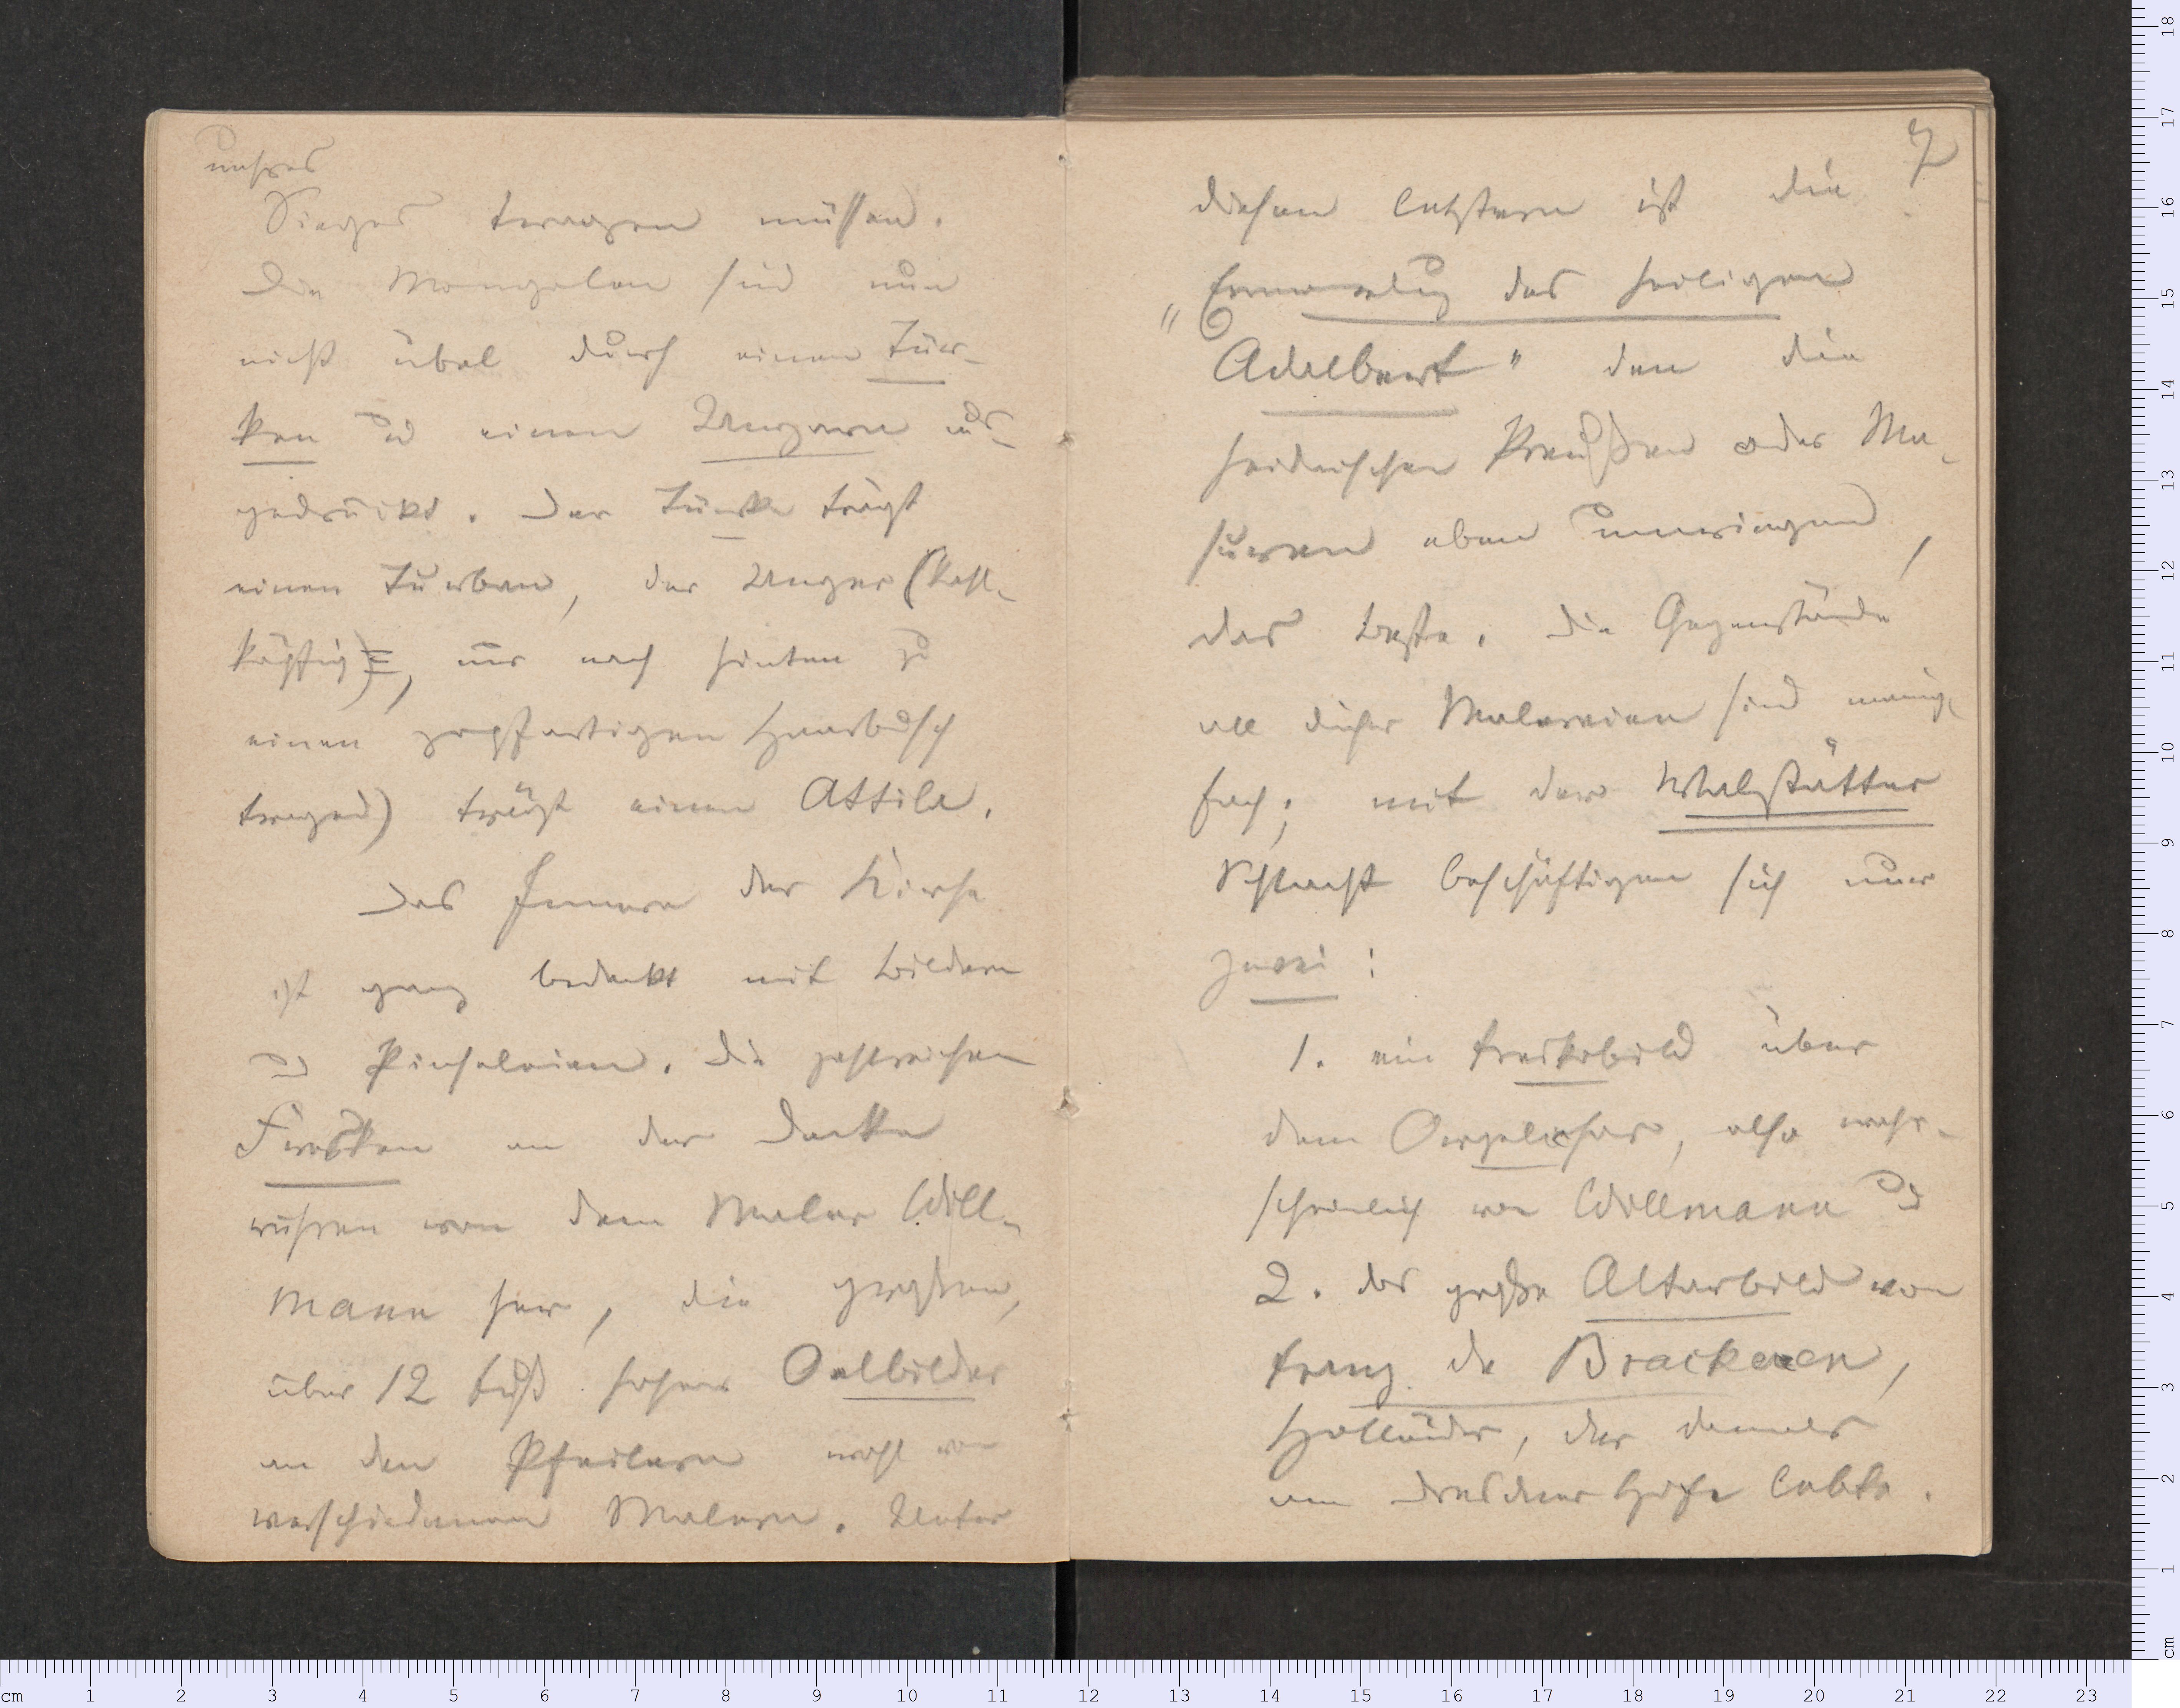 unsres
Sieges tragen müssen.
Die Mongolen sind nun
nicht übel durch einen Tür-
ken u einen Ungarn aus-
gedrückt. Der Türke trägt
einen Turban, der Ungar (kahl-
köpfig), nur nach hinten zu
einen zopfartigen Haarbusch
tragend) trägt einen Attila.
Das Innere der Kirche
ist ganz bedeckt mit Bildern
u Pinseleien. Die zahlreichen
Fresken an der Decke
rühren von dem Maler Will-
mann her, die großen,
über 12 Fuß hohen Oelbilder
an den Pfeilern wohl von
verschiedenen Malern. Unter
7
diesen letztern ist die
"Ermordung des heiligen
Adalbert" den die
heidnischen Preußen oder Ma-
suren eben umringen,
das beste. Die Gegenstände
all dieser Malereien sind mannig-
fach; mit der Wahlstätter
Schlacht beschäftigen sich nur
zwei:
1. ein Freskobild über
dem Orgelchor, also wahr-
scheinlich von Willmann u
2. das große Altarbild von
Franz de Backer,
Holländer, der damals
am Dresdner Hofe lebte.